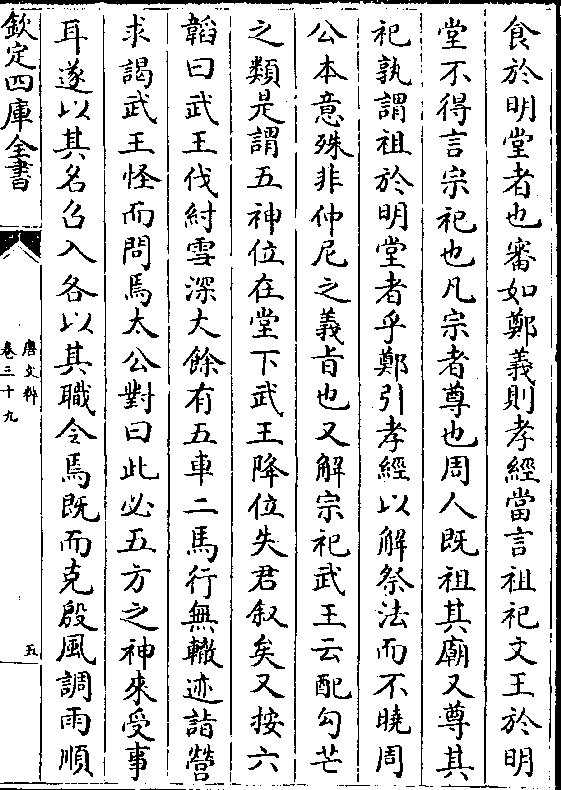 食於明堂者也審如鄭義則孝經當言祖祀文王於明
堂不得言宗祀也凡宗者尊也周人既祖其廟又尊其
祀孰謂祖於明堂者乎鄭引孝經以解祭法而不曉周
公本意殊非仲尼之義旨也又解宗祀武王云配勾芒
之類是謂五神位在堂下武王降位失君叙矣又按六
韜曰武王伐紂雪深大餘有五車二馬行無轍迹詣營
求謁武王怪而問焉太公對曰此必五方之神來受事
耳遂以其名召入各以其職令焉既而克殷風調雨順
欽定四庫全書
唐文粹
卷三十九
五